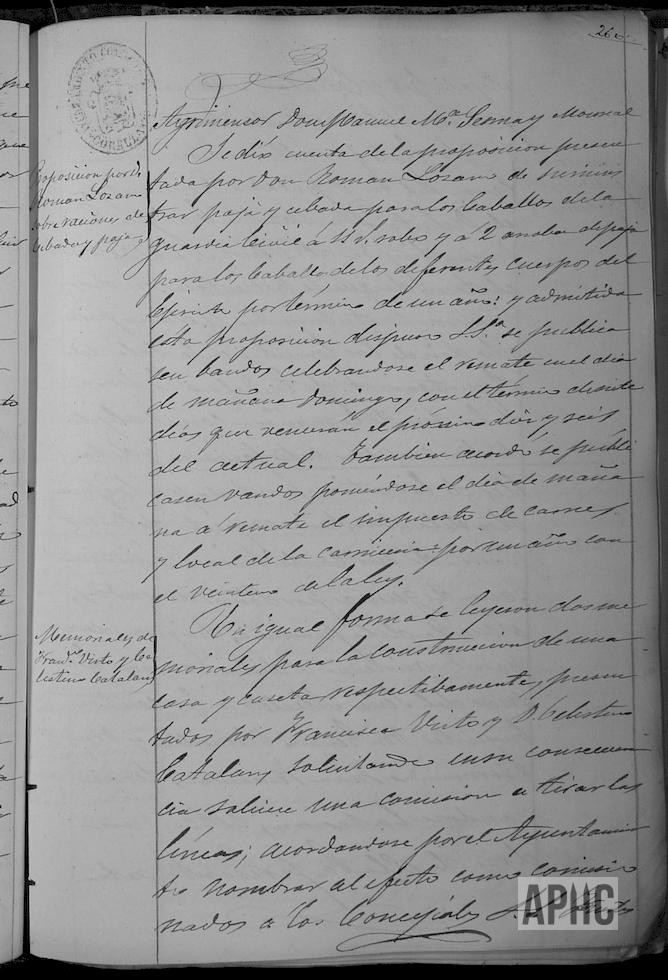 26
Agrimensor Don Manuel Mª Serna y Monreal
Proposicion por D.
Roman Lozano
sobre raciones de
Cebada y paja
Se dió cuenta de la proposicion presen
tada por Don Roman Lozano de suminis
trar paja y cebada para los Caballos de la
guardia Civil á 11 r. robo y á 2 arroba de paja
para los Caballos de los diferentes cuerpos del
Ejército por término de un año: y admitida
esta proposicion dispuso S.Sª. se publica
sen bandos celebrandose el remate en el dia
de mañana Domingo, con el termino de siete
dias que vencerán el próximo dia y seis
del actual. Tambien acordó se publi
casen vandos poniéndose el dia de maña
na á remate el impuesto de carnes
y local de la carniceria por un año con
el veinteno de la ley.
Memoriales de
Franca. Virto y Ce
lestino Catalan
En igual forma se leyeron dos me
moriales para la construccion de una
casa y caseta respectibamente, presen
tados por Francisca Virto y D. Celestino
Catalan, solicitando en su consecuen
cia saliese una comision a tirar las
líneas; acordandose por el Ayuntamien
to nombrar al efecto como comisio
nados a los Concejales
APHC